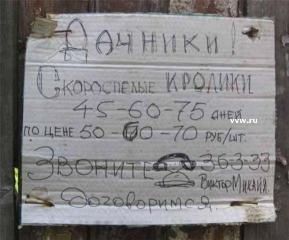 ДАЧНИКИ!
СКОРОСПЕЛЫЕ КРОЛИКИ
45-60-75 ДНЕЙ
www.ru
ПО ЦЕНЕ 50-60-70 РУБ/ШТ.
ЗВОНИТЕ 363-33
ВИКТОР МИХАЙЛ.
ДОГОВОРИМСЯ.